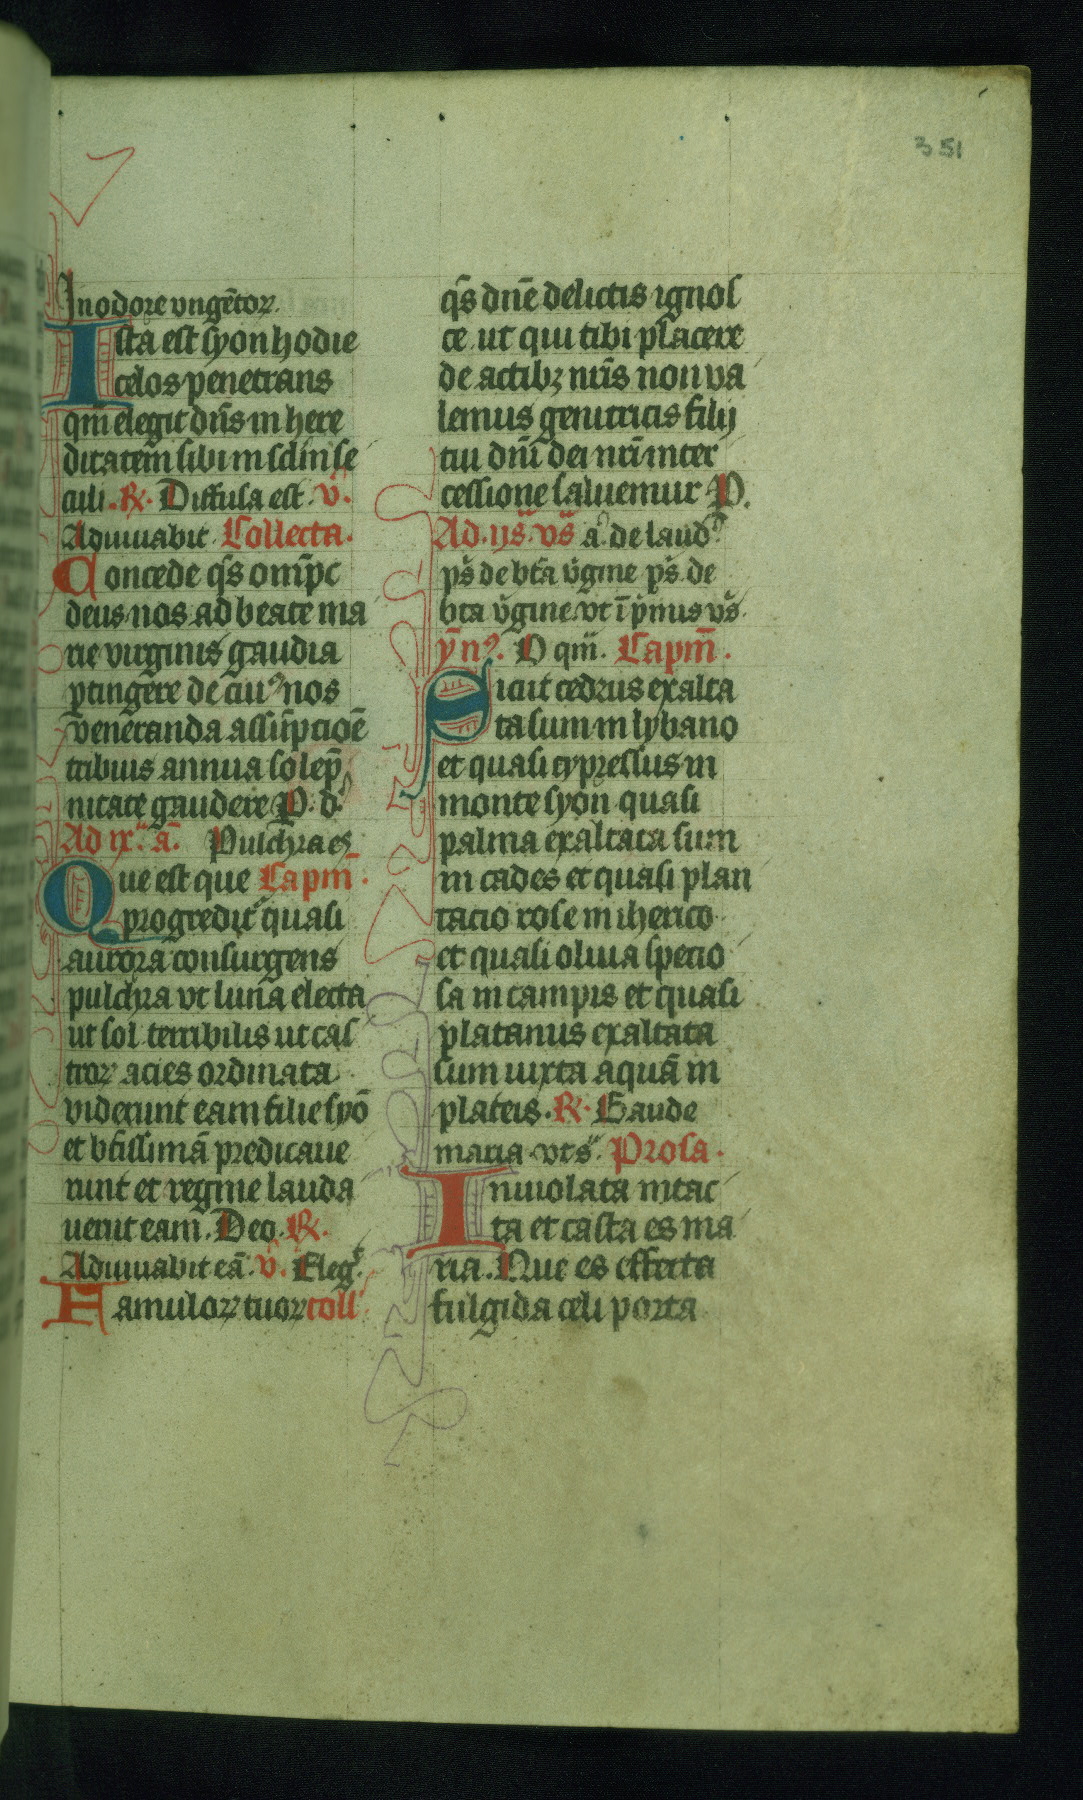 351
In odore vngētoꝝ.
Ista est syon hodie
celos penetrans
qm̄ elegit dn̄s in here
ditatem sibi in sclm̄ se
culi. ℟. Diffusa est. v̄.
Adiuuabit. Collecta.
Concede qs̄ omp̄c
deus nos ad beate ma
rie virginis gaudia
ꝑtingere de cuiꝰ nos
veneranda assūpcioē
tribuis annua solēp
nitate gaudere P. d.
Ad ix. a. Pulchra es
Que est que Capm̄.
progreditʳ quasi
aurora consurgens
pulchra vt luna electa
ut sol terribilis ut cas
troꝝ acies ordinata
viderunt eam filie syō
et btīssimā predicaue
runt et regine lauda
uerūt eam. Deo. ℟.
Adiuuabit eā. v̄. Eleg̃.
Famuloꝝ tuoꝝ coll
qs̄ dn̄e delictis ignos
ce ut qui tibi placere
de actibꝫ nr̄is non va
lemus genitricis filij
tui dn̄i dei nr̄i inter
cessione saluemur P.
Ad ijs. vs̄ a. de laud
ps̄ de bt̄a v̄gine ps̄ de
bt̄a v̄gine vt ī p̄mus vs̄.
ẏnꝰ. O qm̄. Capm̄.
Sicut cedrus exalta
ta sum in lybano
et quasi cypressus in
monte syon quasi
palma exaltata sum
in cades et quasi plan
tacio rose in iherico
et quasi oliua specio
sa in campis et quasi
platanus exaltata
sum iuxta aquā in
plateis. ℟. Gaude
maria vt s. Prosa.
Inuiolata intac
ta et casta es ma
ria. Que es effecta
fulgida celi porta